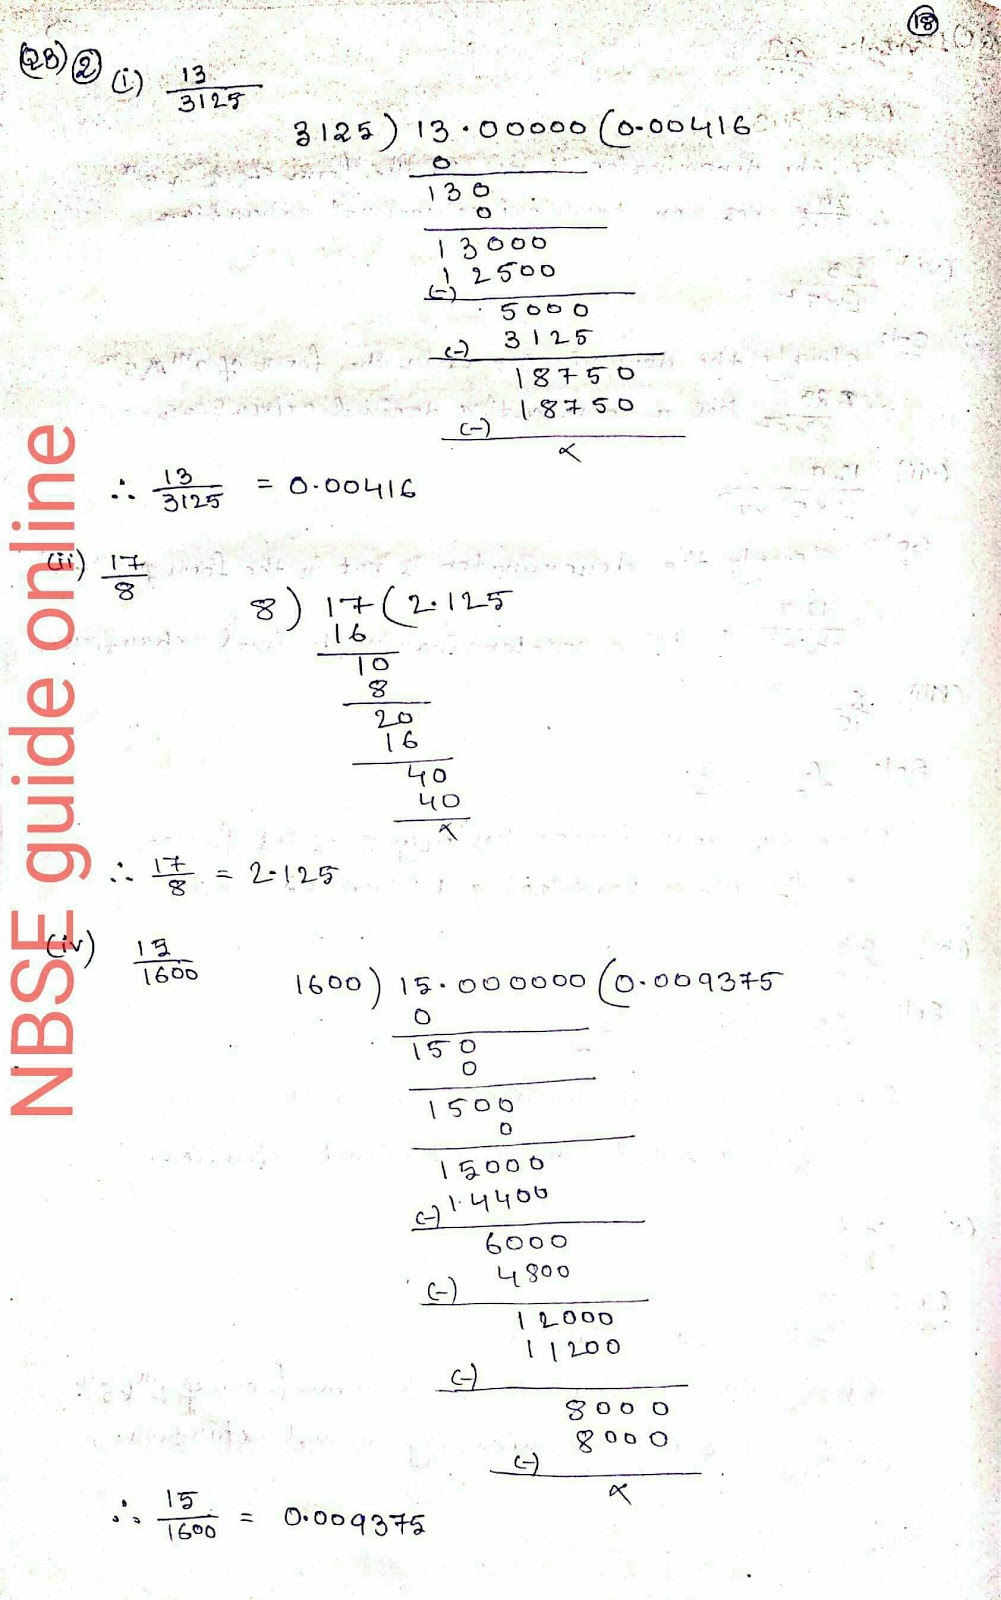 18
QB) 2 (i) 13/3125
3125) 13.00000(0.00416
0
130
0
13000
(-) 12500
5000
(-) 3125
18750
(-) 18750
×
∴ 13/3125 = 0.00416
(ii) 17/8
8) 17(2.125
16
10
8
20
16
40
40
×
∴ 17/8 = 2.125
(iv) 15/1600
1600) 15.000000(0.009375
0
150
0
1500
0
15000
(-) 14400
6000
(-) 4800
12000
(-) 11200
8000
(-) 8000
×
∴ 15/1600 = 0.009375
NBSE guide online